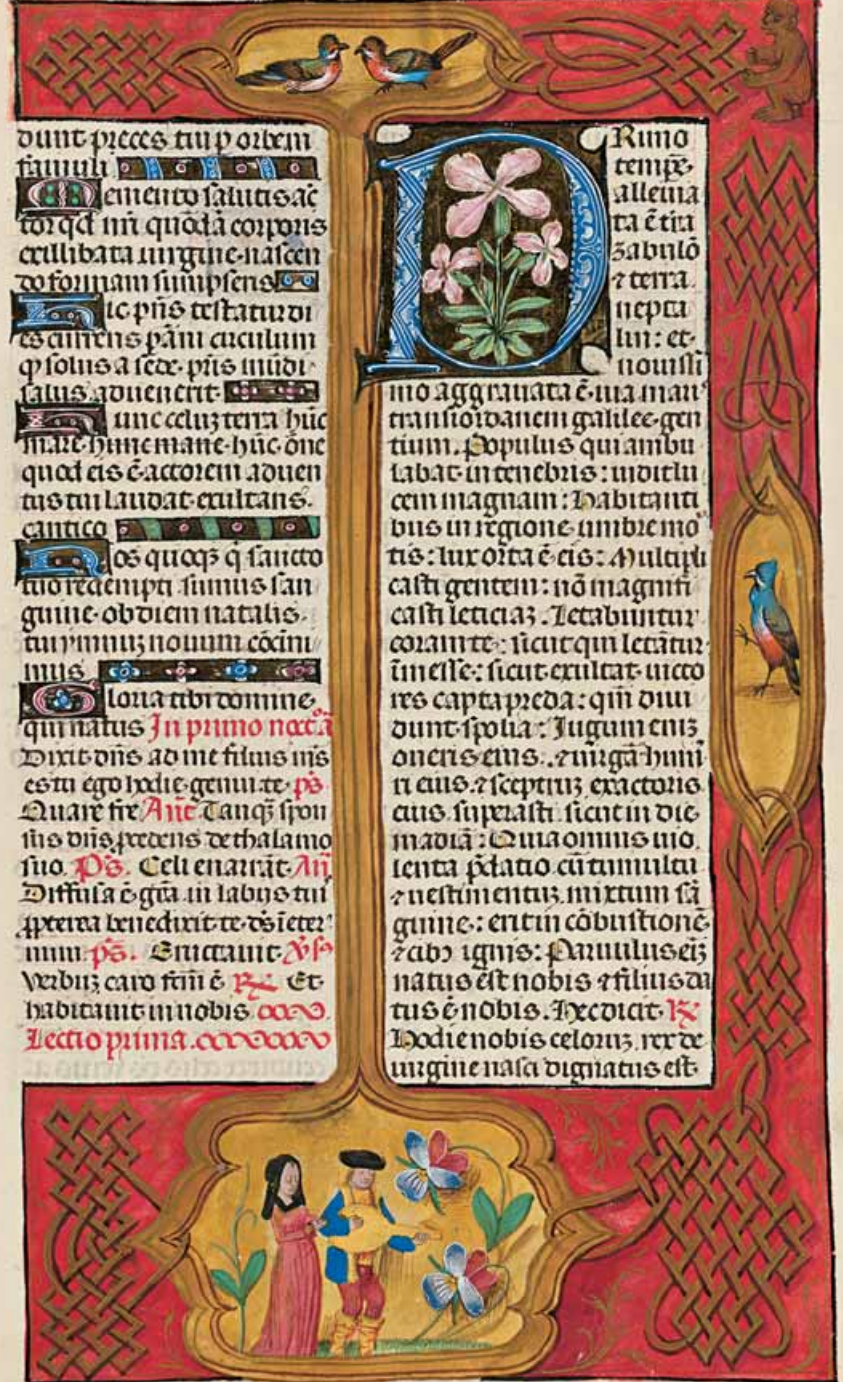 dunt preces tui p orbem
famuli
Memento salutis ac
tor qd nr̄i quōdā corporis
ex illibata uirgine nascen
do formam sumpseris
Hic pn̄s testatur di
es currens p āni circulum
qͥ solus a sede pr̄is mūdi
salus adueneris
Hunc celuz terra hūc
mare hunc mane hūc ōne
quod eis ē actorem aduen
tus tui laudat exultans
cantico
Nos quoqꝫ qͥ sancto
tuo redempti sumus san
guine ob diem natalis
tui ymnuz nouum cōcini
mus
Gloria tibi domine
qui natus In primo noct̄a
Dixit dn̄s ad me filius m̄s
es tu ego hodie genui te p̄s
Quare fre An̄t Tanqꝫ spon
sus dn̄s p̄cedens de thalamo
suo P̄s. Celi enarrāt An̄
Diffusa ē gr̄a in labijs tui
ꝓpterea benedixit te ds̄ ī eter
num p̄s. Eructauit V̄s
Verbuz caro fcm̄ ē ℟ Et
habitauit in nobis
Lectio prima.
PRimo
tempe
alleuia
ta ē tr̄a
zabulō
⁊ terra
nepta
lim: et
nouissi
mo aggrauata ē uia mar
transiordanem galilee gen
tium. Populus qui ambu
labat in tenebris: uidit lu
cem magnam: Habitanti
bus in regione umbre mo
tis: lux orta ē eis: Multipli
casti gentem: nō magnifi
casti leticiaꝫ. Letabuntur
coram te: sicut qui letātur
ī messe: sicut exultāt uicto
res capta preda: qn̄ diui
dunt spolia: Jugum eniꝫ
oneris eius: ⁊ uirgā humi
ri eius ⁊ sceptruꝫ exactoris
eius superasti sicut in die
madiā: Quia omnis uio
lenta p̄datio cū tumultu
⁊ uestimentuꝫ mixtum sā
guine: erit in cōbustionē
⁊ cibꝰ ignis: Paruulus eiꝫ
natus est nobis ⁊ filius da
tus ē nobis. Hec dicit. ℟
Hodie nobis celoruꝫ rex de
uirgine nasci dignatus est